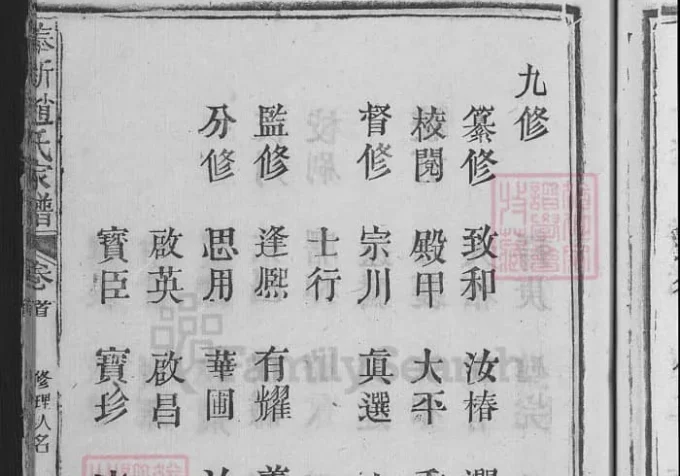 九修
纂修 致和 汝椿
校閱 殿甲 大平
督修 宗川 真選
士行
監修 逢熈 有耀
分修 思用 華圃
啟英 啟昌
寶臣 寶珍
新趙氏家譜 卷首 修理人名
FamilySearch